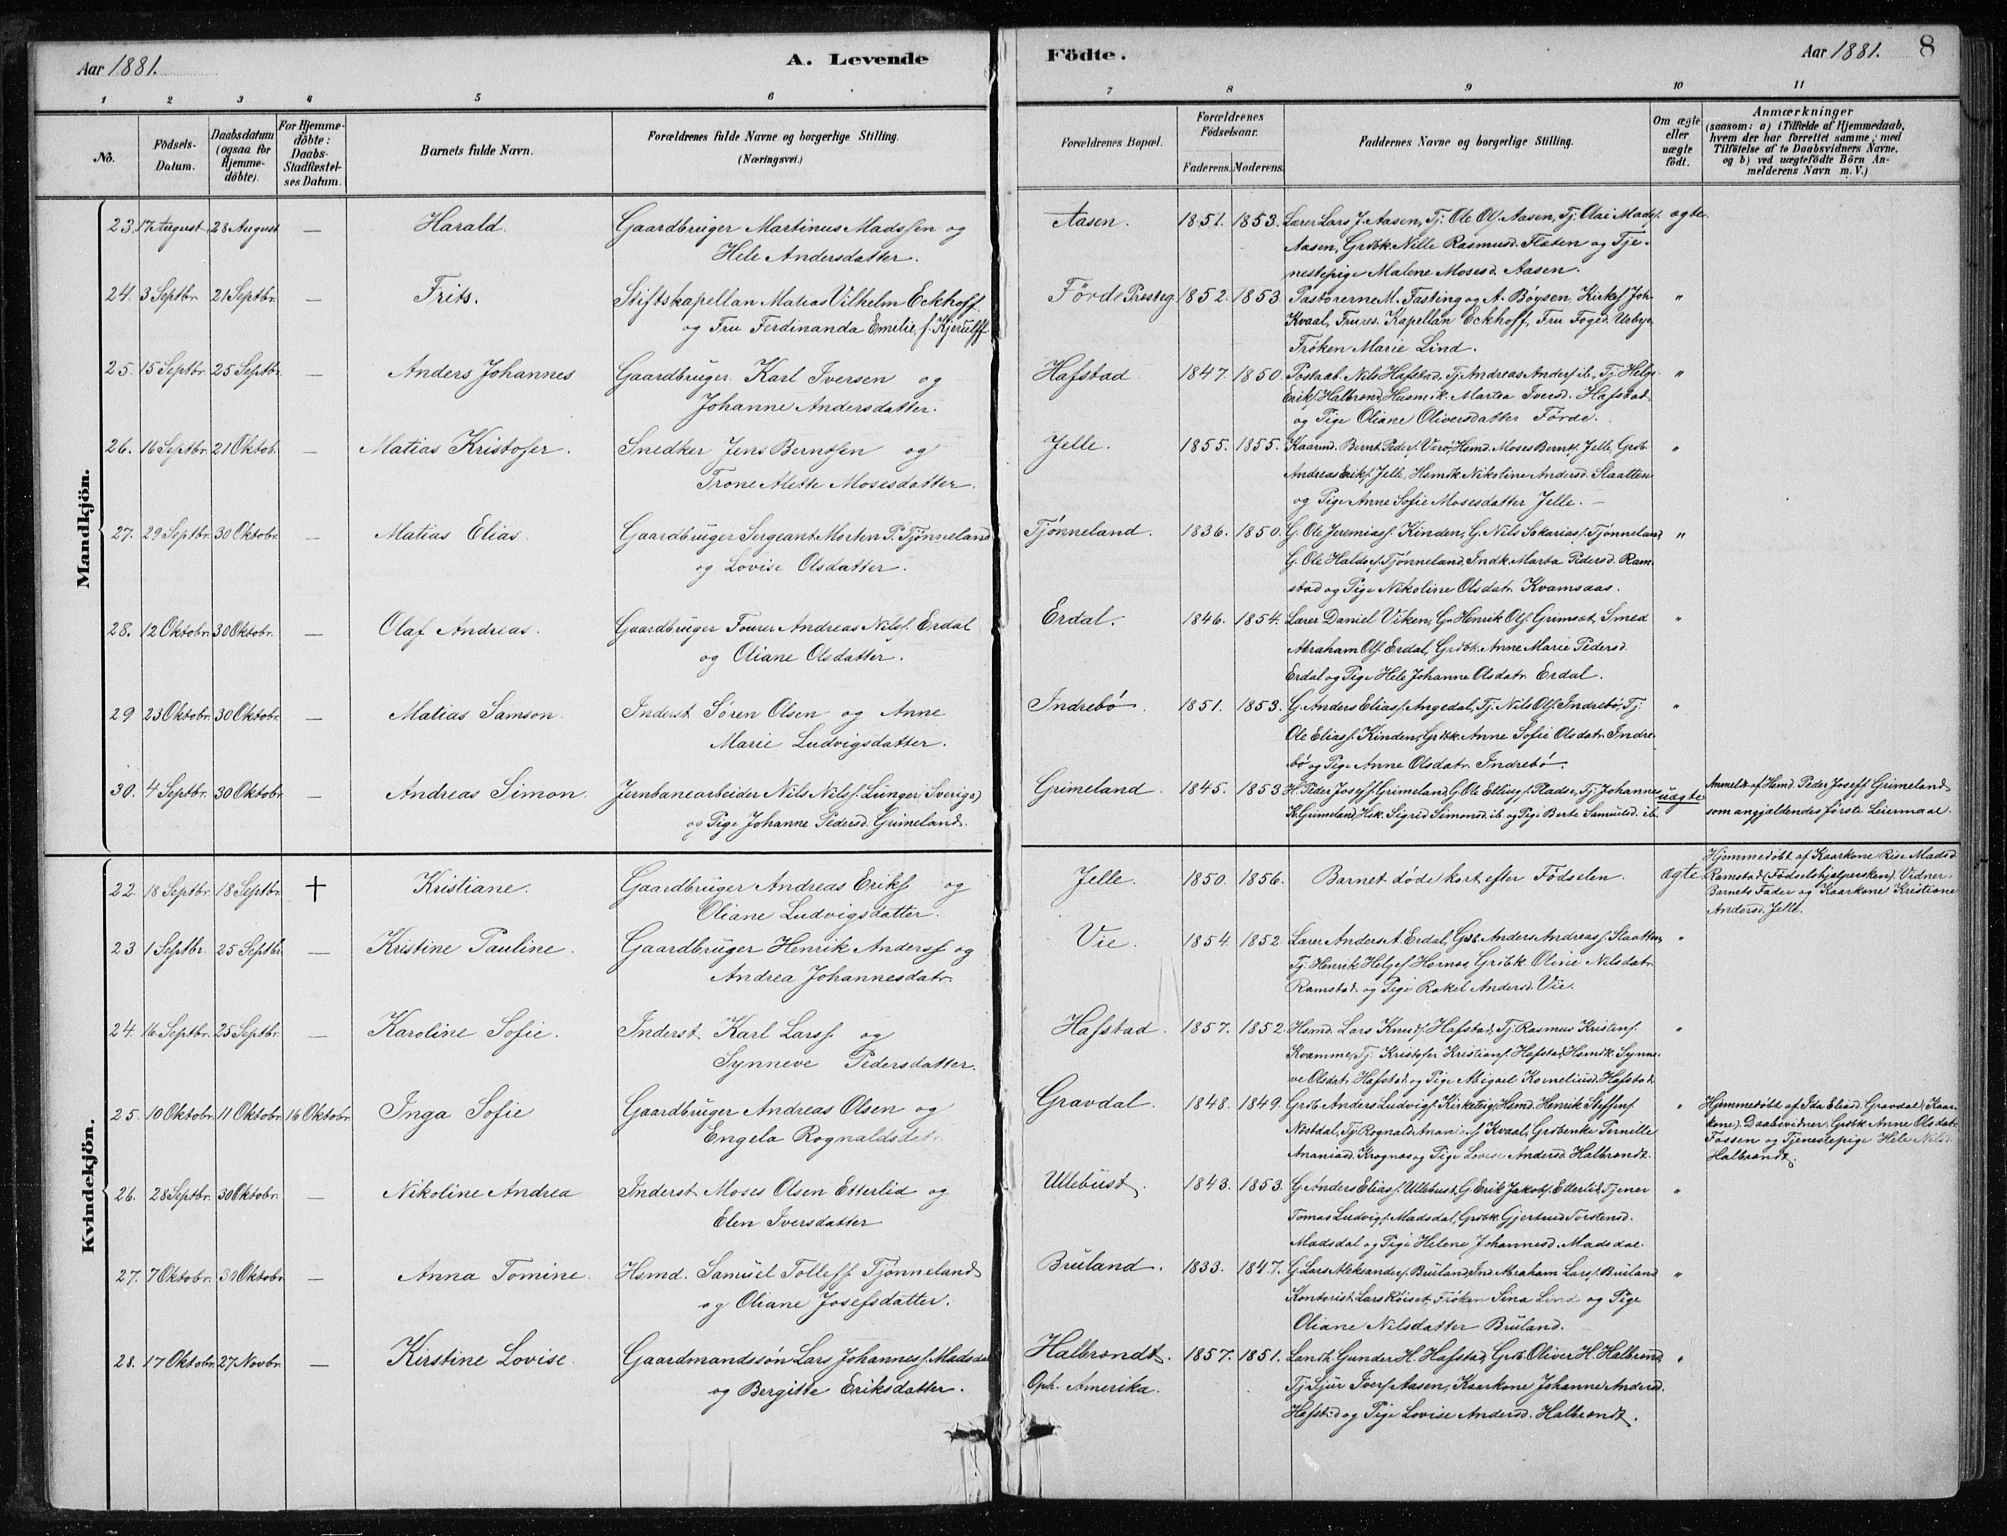 Aar 1881. A. Levende Födte. Aar 1881. 8
1 2 3 4 5 6 7 8 9 10 11
No. Födsels-Datum. Daabsdatum (ogsaa for Hjemmedöbte). For Hjemmedöbte: Daabs-Stadfæstelses Datum. Barnets fulde Navn. Forældrenes fulde Navne og borgerlige Stilling. (Næringsvei.) Forældrenes Bopæl. Forældrenes Födselsaar. Faderens. Moderens. Faddernes Navne og borgerlige Stilling. Om ægte eller uægte födt. Anmærkninger (saasom: a) i Tilfælde af Hjemmedaab, hvem der har forrettet samme, med Tilföielse af to Daabsvidners Navne, og b) ved uægtefödte Börn Anmelderens Navn m. V.)
Mandkjön.
23. 17 August 28 August — Harald. Gaardbruger Martinus Madssen og Aasen. 1851. 1853. Lærer Lars J. Aasen, Tj. Ole Ols. Aasen, Tj. Olai Mads. ægte.
Hele Andersdatter. Aasen, Grdbk. Nille Rasmusd. Flaten og Tje-
nestepige Malene Mosesd. Aasen.
24. 3 Septbr. 21 Septbr. — Frits. Stiftskapellan Matias Vilhelm Eckhoff Förde Prestegd. 1852. 1853. Pastorerne M. Fasting og A. Böysen, Kirkes. Joh. "
og Fru Ferdinanda Emilie, f. Kjerulff. Kvaal, Frures. Kapellan Eckhoff, Fru Foged Usbye,
Fröken Marie Lind.
25. 15 Septbr. 25 Septbr. — Anders Johannes Gaardbruger Karl Iversen og Hafstad. 1847. 1850. Postaab. Nils Hafstad, Tj. Andreas Anders. ib., Tj. Helge "
Johanne Andersdatter. Eriks. Halbrend, Husmk. Martea Iversd. Hafstad
og Pige Oliane Oliversdatter Förde.
26. 16 Septbr. 21 Oktob. — Matias Kristofer. Snedker Jens Berntsen og Jelle. 1855. 1855. Kaarmd. Bernt Peders. Verö, Hsmd. Moses Bernts. Jelle, Grdb. "
Trone Alette Mosesdatter. Andreas Eriks. Jelle, Hsmdk. Nikoline Andersd. Slaatten
og Pige Anne Sofie Mosesdatter Jelle. —
27. 29 Septbr. 30 Oktobr. — Matias Elias. Gaardbruger Sergeant Morten P. Tjönneland Tjönneland. 1836. 1850. G. Ole Jeremias. Kinden, G. Nils Sakarias. Tjönneland "
og Lovise Olsdatter. G. Ole Haldos. Tjönneland, Indk. Marta Pedersd. Ram-
stad og Pige Nikoline Olsdatr. Kvamsaas.
28. 12 Oktobr. 30 Oktobr. — Olaf Andreas. Gaardbruger Fourer Andreas Nils. Erdal Erdal. 1846. 1854. Lærer Daniel Viken, G. Henrik Ols. Grimset, Smed "
og Oliane Olsdatter. Abraham Ols. Erdal, Grdbk. Anne Marie Pedersd.
Erdal og Pige Hele Johanne Olsdatr. Erdal.
29 23 Oktobr. 30 Oktobr. — Matias Samson. Inderst Sören Olsen og Anne Indrebö. 1851. 1853. G. Anders Elias. Angedal, Tj. Nils Ols. Indrebö, Tj. "
Marie Ludvigsdatter. Ole Elias. Kinden, Grdbk. Anne Sofie Olsdatr. Indre-
bö og Pige Anne Olsdatr. Indrebö.
30. 4 Septbr. 30 Oktobr. — Andreas Simon. Jernbanearbeider Nils Nils. Lunger (Sverige) Grimeland. 1845. 1853. H. Peder Josefs. Grimeland, G. Ole Ellings. Flade, Tj. Johannes uægte Anmeldt af Hsmd. Peder Josefs. Grimeland
og Pige Johanne Pedersd. Grimeland. K. Grimeland, Hsk. Sigrid Simonsd. ib. og Pige Berte Samuelsd. ib. som angjældendes förste Leiermaal.
Kvindekjön.
22. 18 Septbr. 18 Septbr. + Kristiane. Gaardbruger Andreas Eriks. og Jelle. 1850. 1856. Barnet döde kort efter Födselen. ægte Hjemmedöbt af Kaarkone Rise Madsd.
Oliane Ludvigsdatter. Ramstad (Födselshjælpersken). Vidner:
Barnets Fader og Kaarkone Kristiane
Andersd. Jelle.
23 1 Septbr. 25 Septbr. — Kristine Pauline. Gaardbruger Henrik Anders. og Vie. 1854. 1852. Lærer Anders A. Erdal, Grdb. Anders Andreas. Slaatten, "
Andrea Johannesdatr. Tj. Henrik Helges. Hornes, Grdbk. Oline Nilsdatr.
Ramstad og Pige Rakel Andersd. Vie.
24. 16 Septbr. 25 Septbr. — Karoline Sofie. Inderst Karl Larss. og Hafstad. 1857. 1852. Hsmd. Lars Knuds. Hafstad, Tj. Rasmus Kristens. "
Synneve Pedersdatter. Kvamme, Tj. Kristofer Kristians. Hafstad, Hsmdk. Synne-
ve Olsdatr. Hafstad og Pige Abigael Korneliusd. Hafstad.
25. 10 Oktobr. 11 Oktobr. 16 Oktobr. Inga Sofie Gaardbruger Andreas Olsen og Gravdal. 1848. 1849. Grdb. Anders Ludvigs. Kirketeig, Hsmd. Henrik Steffens. " Hjemmedöbt af Ida Eliasd. Gravdal (Kaar-
Engela Rognaldsdatr. Nesdal, Tj. Rognald Ananias. Kvaal, Grdbenke Pernille kone). Daabsvidner: Grdbk. Anne Olsdatr.
Ananiasd. Krognes og Pige Lovise Andersd. Halbrendt. Fossen og Tjenestepige Hele Nilsd.
Halbrendt.
26. 28 Septbr. 30 Oktobr. — Nikoline Andrea Inderst Moses Olsen Etterlid og Ullebust. 1843. 1853. G. Anders Elias. Ullebust, G. Erik Jakobs. Etterlid, Tjener "
Elen Iversdatter Tomas Ludvigs. Madsdal, Grdbk. Gjertrud Torstensd.
Madsdal og Pige Helene Johannesd. Madsdal.
27. 7 Oktobr. 30 Oktobr. — Anna Tomine. Hsmd. Samuel Tollefs. Tjönneland Bruland. 1833. 1847. G. Lars Aleksanders. Bruland, Ind. Abraham Lars. Bruland "
og Oliane Josefsdatter. Kontorist Lars Röiset, Fröken Sina Lind og Pige
Oliane Nilsdatter Bruland.
28. 17 Oktobr. 27 Novbr. — Kirstine Lovise. Gaardmandssön Lars Johannes. Madsdal Halbrendt. 1857. 1851. Landh. Gunder H. Hafstad, Grdb. Oliver H. Halbrend, "
og Bergitte Eriksdatter. Oph. Amerika. Tj. Sjur Ivers. Aasen, Kaarkone Johanne Andersd.
Hafstad og Pige Lovise Andersd. Halbrendt.